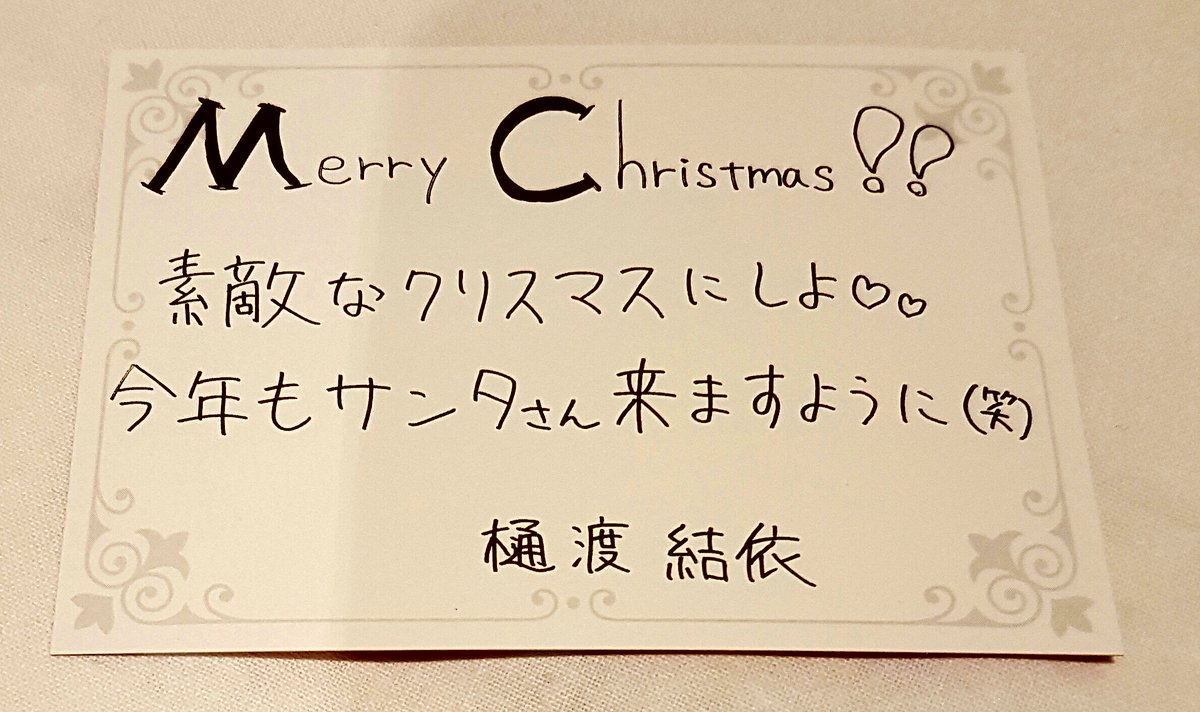 Merry Christmas!!
素敵なクリスマスにしよ♡♡
今年もサンタさん来ますように(笑)
樋渡 結依